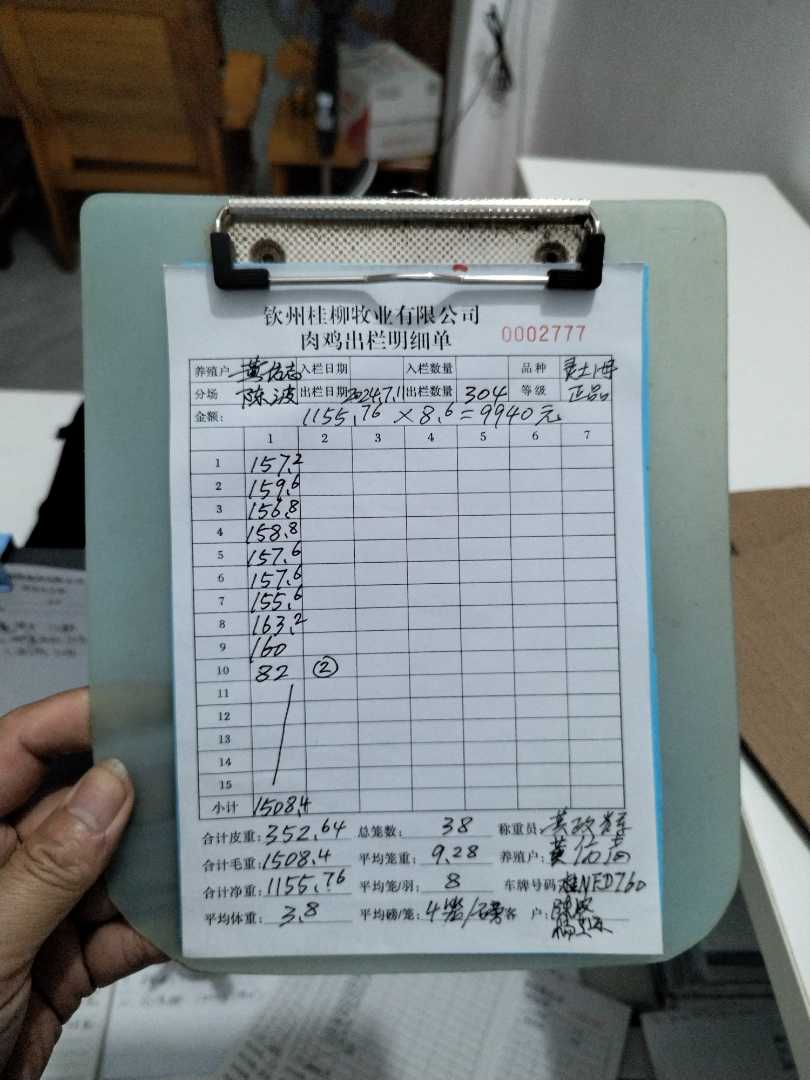 钦州桂柳牧业有限公司
肉鸡出栏明细单 0002777
养殖户 黄 入栏日期 入栏数量 品种
分场 陈波 出栏日期 2024.7.11 出栏数量 304 等级 正品
金额: 1155.76 × 8.6 = 9940元
1 2 3 4 5 6 7
1 157.2
2 159.6
3 156.8
4 158.8
5 157.6
6 157.6
7 155.6
8 163.2
9 160
10 82 ②
11
12
13
14
15
小计 1508.4
合计皮重: 352.64 总笼数: 38 称重员: 黄
合计毛重: 1508.4 平均笼重: 9.28 养殖户: 黄
合计净重: 1155.76 平均笼/羽: 8 车牌号码 桂NFD760
平均体重: 3.8 平均磅/笼: 4笼/磅 客 户: